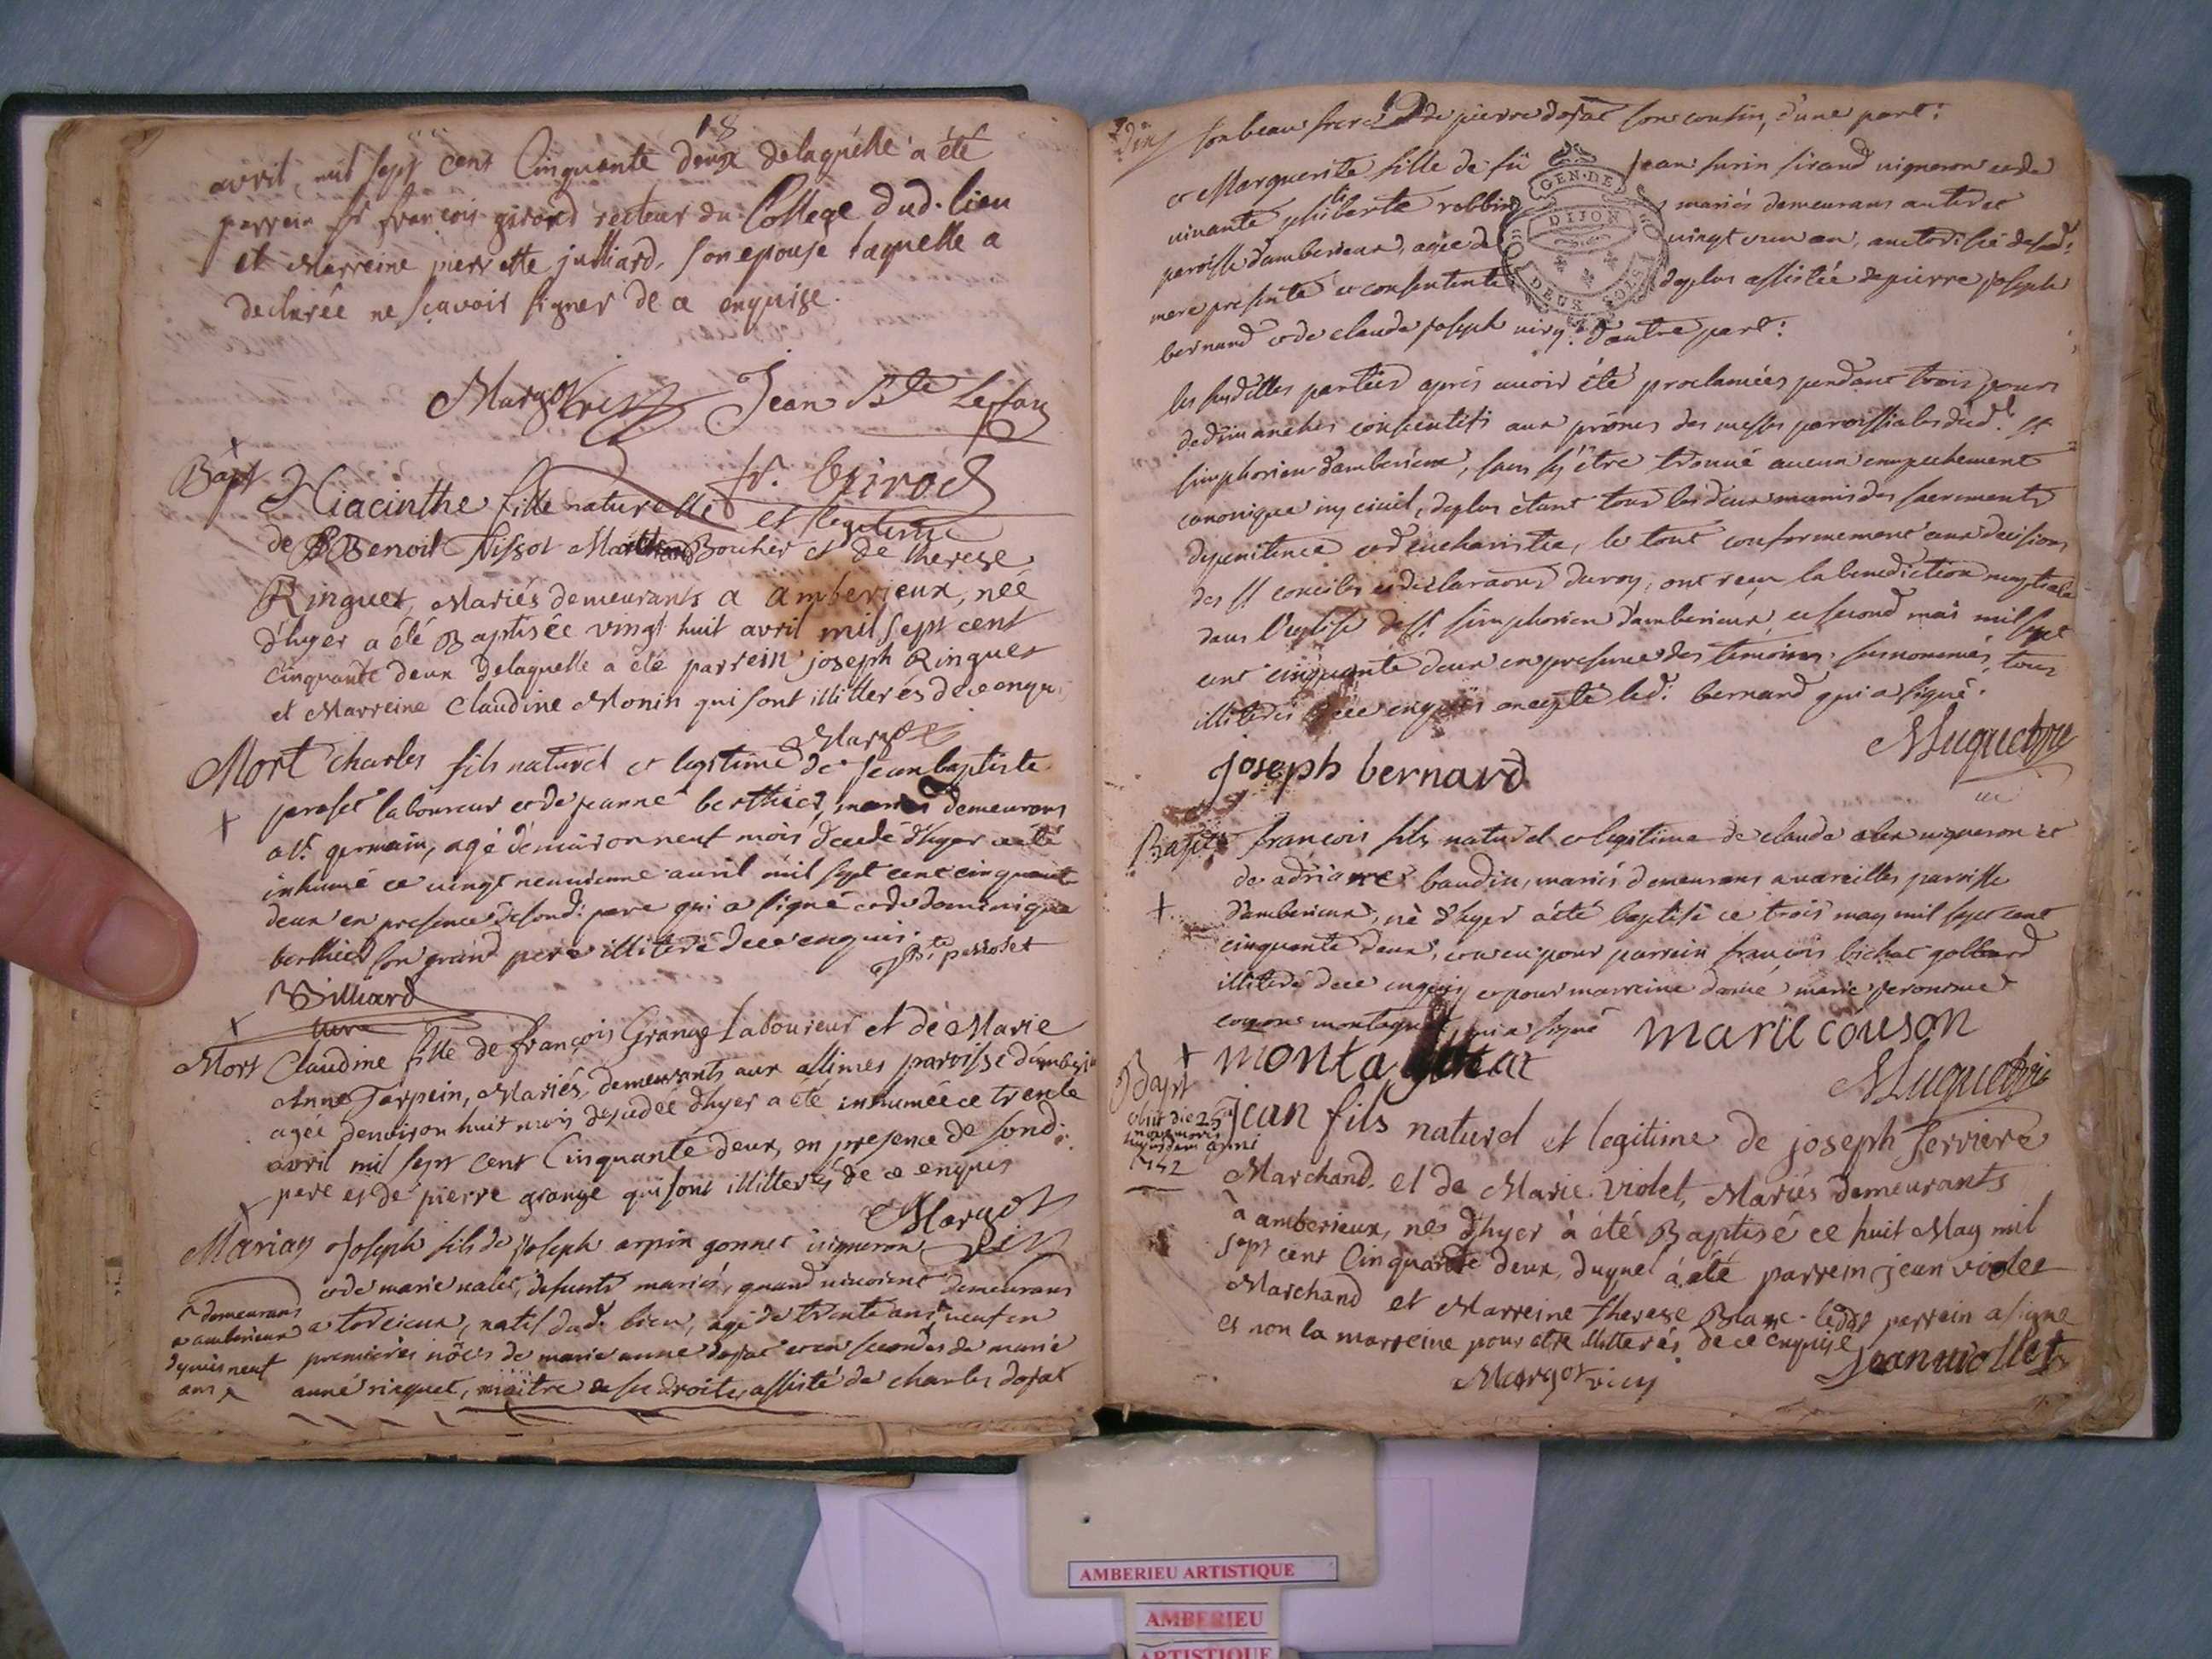 18
avril, mil sept cent Cinquante deux delaquelle a été
parrein Sr françois girord recteur du College dud. lieu
et Marreine pierrette julliard, son epouse laquelle a
declarée ne sçavoir signer de ce enquise.
Margot vic Jean Bte
fr. Girod
Bapt Hiacinthe fille naturelle et legitime
de Benoit Nissot Boucher et de therese
Ringuet, Mariés demeurants a amberieux, née
d'hyer a été Baptisée vingt huit avril mil sept cent
cinquante deux delaquelle a été parrein joseph Ringuet
et Marreine Claudine Monin qui sont illitterés de ce enqui
Margot
Mort charles fils naturel et legitime de jean baptiste
laboureur et de jeanne berthier, mariés demeurans
a st. germain, agé d'environ neuf mois decedé d'hyer a été
inhumé ce vingt neuvieme avril mil sept cent cinquante
deux en presence de sond: pere qui a signé et de dominique
berthier son grand pere illiteré de ce enquis.
JBte perroset
Billiard
cure
Mort Claudine fille de françois Grange Laboureur et de Marie
Anne Tarpein, Mariés, demeurants aux allimes paroisse d'amberi
agée d'environ huit mois decedée d'hyer a été inhumée ce trente
avril mil sept cent Cinquante deux, en presence de sond:
pere et de pierre grange qui sont illitterés de ce enquis
Margot
vic
Mariag joseph fils de joseph arpin gonnet vigneron
et de marie nalet, defunts mariés, quand vivoient demeurans
a torcieux, natif dud. lieu, agé de trente ans, veuf en
premieres nôces de marie anne dofat et en secondes de marie
anne ringuet, maitre de ses droits, assisté de charles dofat
demeurans
a amberieux
depuis neuf
ans
son beau frere de pierre dofat son cousin, d'une part:
et Marguerite fille de fû jean surin sirand vigneron et de
vivante philiberte robbin mariés demeurans audit
paroisse d'amberieux, agée de vingt un an, authorisée de sad:
mere presente et consentente deplus assistée de pierre joseph
bernard et de claude joseph d'autre part:
GEN·DE
DIJON
DEUX SOLS
les susdittes parties après avoir été proclamées pendant trois jours
de dimanches consecutifs aux prônes des messes paroissiales dud. st
simphorien d'amberieux, sans s'y être trouvé aucun empechement
canonique ny civil, deplus étant tous les deux munis des sacrements
de penitence et d'eucharistie, le tout conformement aux decisions
des sts conciles et declaraons du roy, ont reçu la benediction nuptiale
dans l'eglise de st simphorien d'amberieux ce second mai mil sept
cent cinquante deux en presence des temoins susnommés, tous
illiterés de ce enquis excepté led: bernard qui a signé.
joseph bernard
Bapte françois fils naturel et legitime de claude vigneron et
de adrianne baudin, mariés demeurans a vareilles paroisse
d'amberieux, né d'hyer a été baptisé ce trois may mil sept cent
cinquante deux, et a eu pour parrein françois bichat golbard
illiteré de ce enquis et pour marreine dame marie jeronime
couson qui a signé marie couson
monta
Bapt
obiit die 25
ejusdem anni
1752
Jean fils naturel et legitime de joseph ferriere
Marchand, et de Marie violet, Mariés demeurants
à amberieux, nés d'hyer à été Baptisé ce huit May mil
sept cent Cinquante deux, duquel à été parrein jean violet
Marchand et Marreine therese Blanc. ledit parrein a signé
et non la marreine pour etre illiterés de ce enquise
Margot vic jean viollet
AMBERIEU ARTISTIQUE
AMBERIEU
ARTISTIQUE